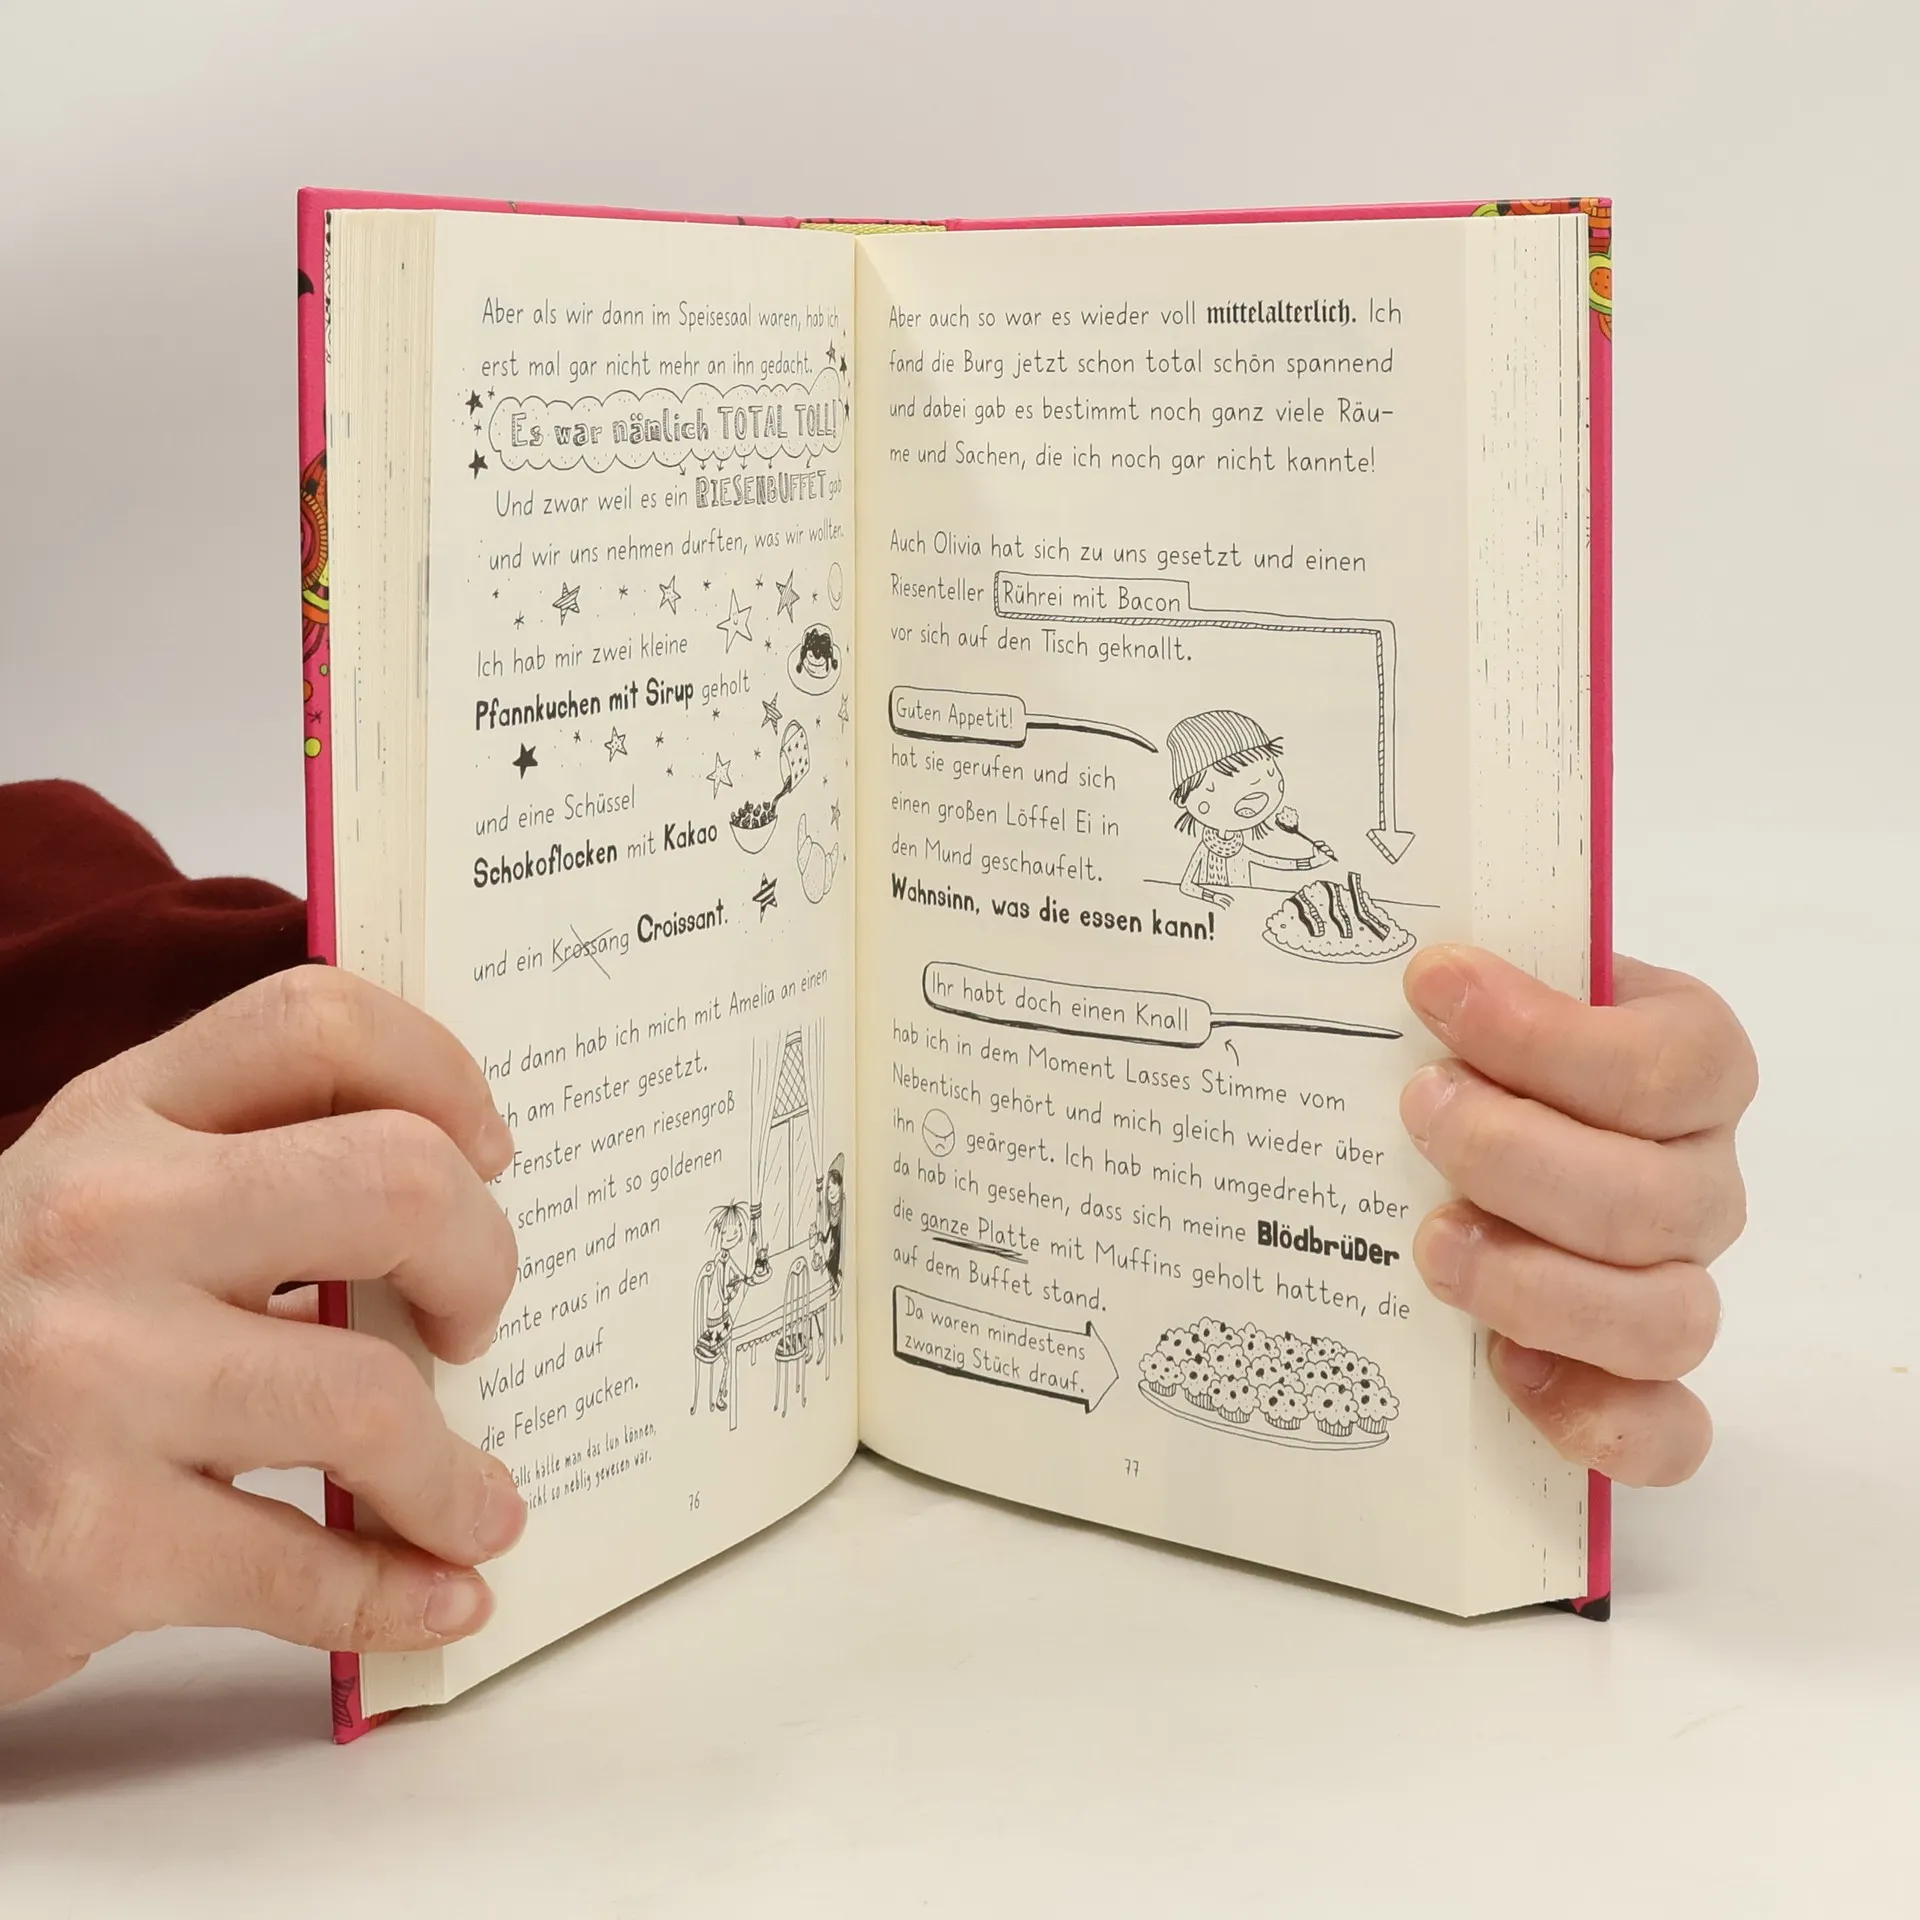 Aber als wir dann im Speisesaal waren, hab ich
erst mal gar nicht mehr an ihn gedacht.
Es war nämlich TOTAL TOLL!
Und zwar weil es ein RIESENBUFFET gab
und wir uns nehmen durften, was wir wollten.
Ich hab mir zwei kleine
Pfannkuchen mit Sirup geholt
und eine Schüssel
Schokoflocken mit Kakao
und ein Krossang Croissant.
nd dann hab ich mich mit Amelia an einen
ch am Fenster gesetzt.
Fenster waren riesengroß
schmal mit so goldenen
hängen und man
onnte raus in den
Wald und auf
die Felsen gucken.
falls hätte man das tun können,
nicht so neblig gewesen wär.
76
Aber auch so war es wieder voll mittelalterlich. Ich
fand die Burg jetzt schon total schön spannend
und dabei gab es bestimmt noch ganz viele Räu-
me und Sachen, die ich noch gar nicht kannte!
Auch Olivia hat sich zu uns gesetzt und einen
Riesenteller Rührei mit Bacon
vor sich auf den Tisch geknallt.
Guten Appetit!
hat sie gerufen und sich
einen großen Löffel Ei in
den Mund geschaufelt.
Wahnsinn, was die essen kann!
Ihr habt doch einen Knall
hab ich in dem Moment Lasses Stimme vom
Nebentisch gehört und mich gleich wieder über
ihn geärgert. Ich hab mich umgedreht, aber
da hab ich gesehen, dass sich meine BlödbrüDer
die ganze Platte mit Muffins geholt hatten, die
auf dem Buffet stand.
Da waren mindestens
zwanzig Stück drauf.
77